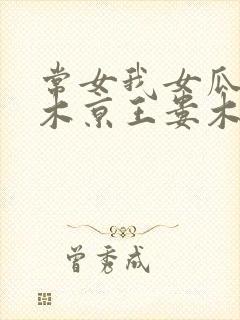 常女我女瓜
木京王娄木
曾秀成